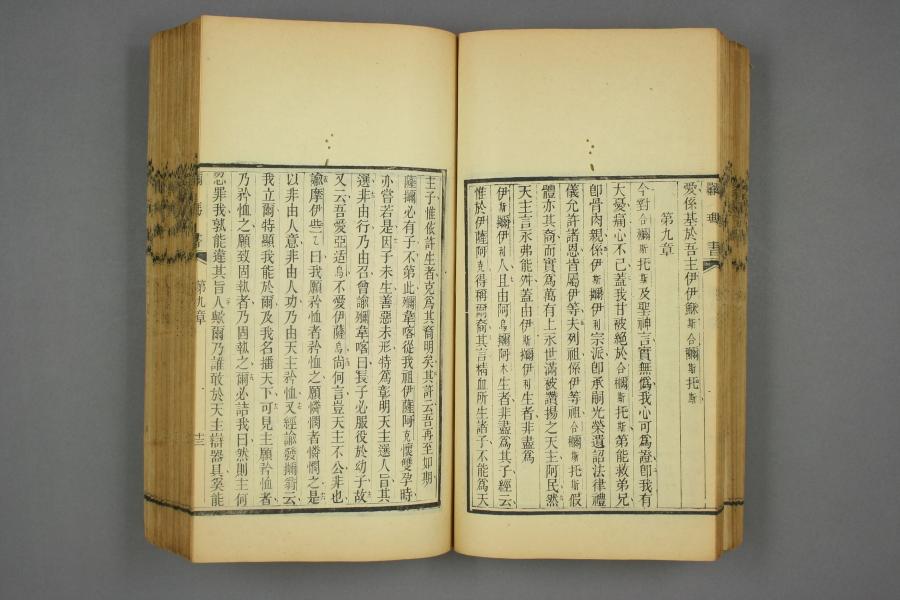 愛係基於吾主伊伊穌斯合爾斯托斯
第九章
今對合爾斯托斯及聖神言實無僞我心可爲證卽我有
大憂痛心不已蓋我甘被絕於合爾斯托斯第能救弟兄
卽骨肉親係伊斯爾伊利宗派卽承嗣光榮遺詔法律禮
儀允許諸恩皆屬伊等夫列祖係伊等祖合爾斯托斯假
體亦其裔而實爲萬有上永世滿被讚揚之天主阿民然
天主言永弗能舛蓋由伊斯爾伊利生者非盡爲
伊斯爾伊利人且由阿烏爾阿木生者非盡爲其子經云
惟於伊薩阿克得稱爾裔其言精血所生諸子不能爲天
主子惟依許生者克爲其裔明矣其許云吾再至如期
薩爾必有子不第此爾韋喀從我祖伊薩阿克懷雙孕時
亦嘗若是因子未生善惡未形特爲彰明天主選人旨其
選非由行乃由召曾諭爾韋喀曰長子必服役於幼子故
又云吾愛亞适烏不愛伊薩烏尚何言豈天主不公非也
諭摩伊些乙曰我願矜恤者矜恤之願憐憫者憐憫之是
以非由人意非由人功乃由天主矜恤又經諭發爾翁云
我立爾特顯我能於爾及我名播天下可見主願矜恤者
乃矜恤之願致固執者乃固執之爾必詰我曰然則主何
怒罪我孰能違其旨人歟爾乃誰敢於天主辯器具奚能
第九章